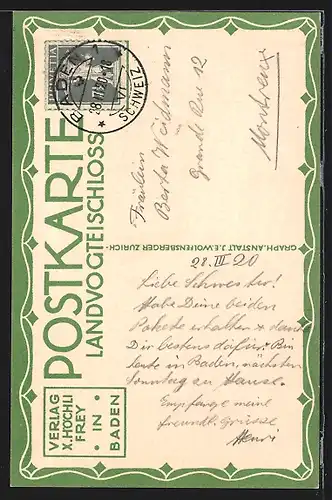 HELVETIA
BADEN 1
28.III.20.-18
VI
* SCHWEIZ
POSTKARTE
LANDVOGTEISCHLOSS
VERLAG
X. HÖCHLI
FREY
• IN •
BADEN
Fräulein
Berta Weidmann
Grande Rue 12
Montreux
GRAPH. ANSTALT J.E. WOLFENSBERGER ZÜRICH
28. III 20
Liebe Schwester!
Habe Deine beiden
Pakete erhalten & danke
Dir bestens dafür. Bin
heute in Baden, nächsten
Sonntag zu Hause.
Empfange meine
freundl. Grüsse
Henri